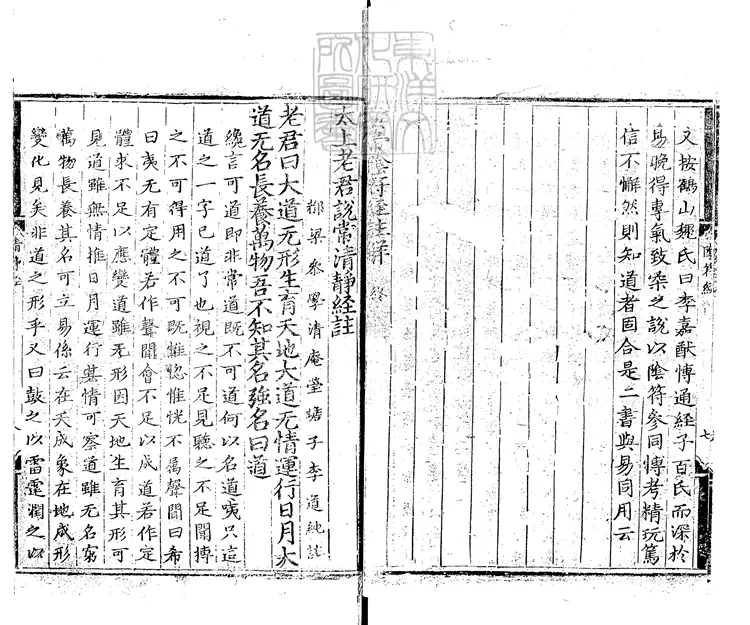 又按鶴山魏氏曰李嘉猷博通經子百氏而深於
易晚得專氣致柔之說以陰符參同博考精玩篤
信不懈然則知道者固合是二書與易同用云
陰符經註 終
陰符經
七
太上老君說常清靜經註
都梁參學清庵瑩蟾子李道純註
老君曰大道无形生育天地大道无情運行日月大
道无名長養萬物吾不知其名強名曰道
纔言可道即非常道既不可道何以名道咦只這
道之一字已道了也視之不足見聽之不足聞摶
之不可得用之不可既惟惚惟恍不屬聲聞曰希
曰夷无有定體若作聲聞會不足以成道若作定
體求不足以應變道雖无形因天地生育其形可
見道雖無情推日月運行其情可察道雖无名窮
萬物長養其名可立易係云在天成象在地成形
變化見矣非道之形乎又曰鼓之以雷霆潤之以
清靜